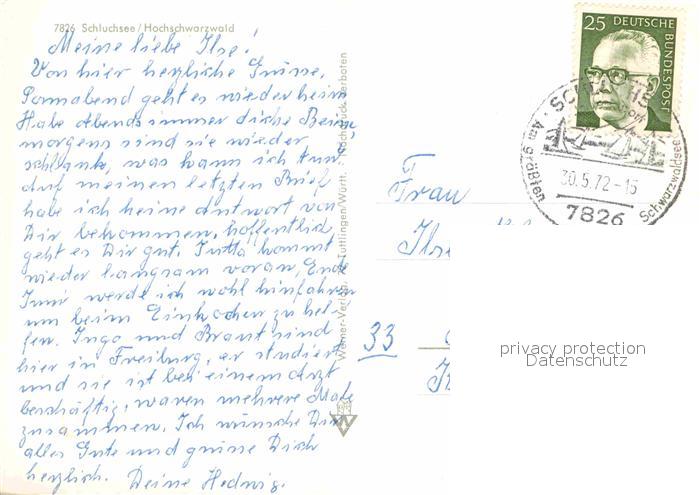 7826 Schluchsee / Hochschwarzwald
Meine liebe Ilse!
Von hier herzliche Grüsse,
Sonnabend geht es wieder heim
Habe Abends immer dicke Beine,
morgens sind sie wieder
schlank, was kann ich tun
Auf meinen letzten Brief
habe ich keine Antwort von
Dir bekommen, hoffentlich
geht es Dir gut. Jutta kommt
wieder langsam voran, Ende
Juni werde ich wohl hinfahren
um beim Einkochen zu hel-
fen. Ingo und Braut sind
hier in Freiburg, er studiert
und sie ist bei einem Arzt
beschäftigt, waren mehrere Male
zusammen. Ich wünsche Dir
alles Gute und grüsse Dich
herzlich. Deine Hedwig.
Werner-Verlag, Tuttlingen/Württ. Nachdruck verboten
25 DEUTSCHE BUNDESPOST
Am größten Schwarzwaldsee
30.5.72-15
7826
Frau
33
privacy protection
Datenschutz